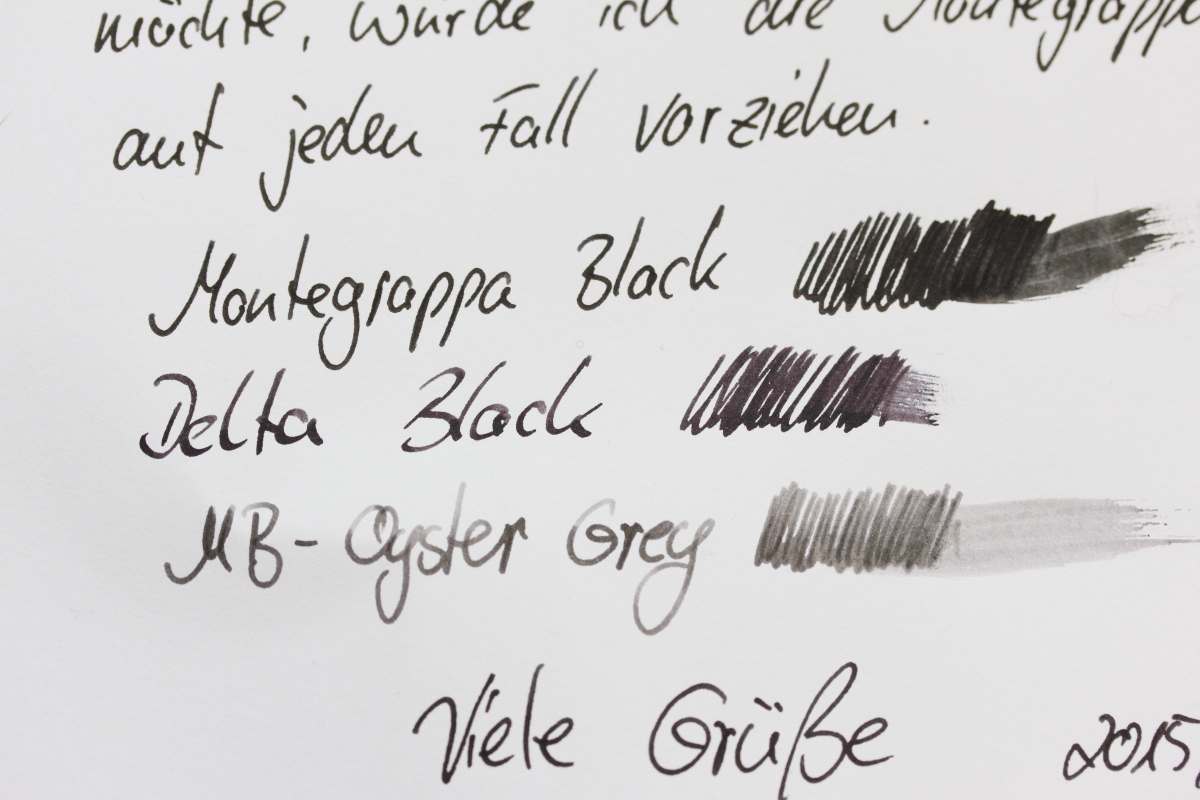 möchte, würde ich die Montegrappa
auf jeden Fall vorziehen.
Montegrappa Black
Delta Black
MB-Oyster Grey
Viele Grüße 2015